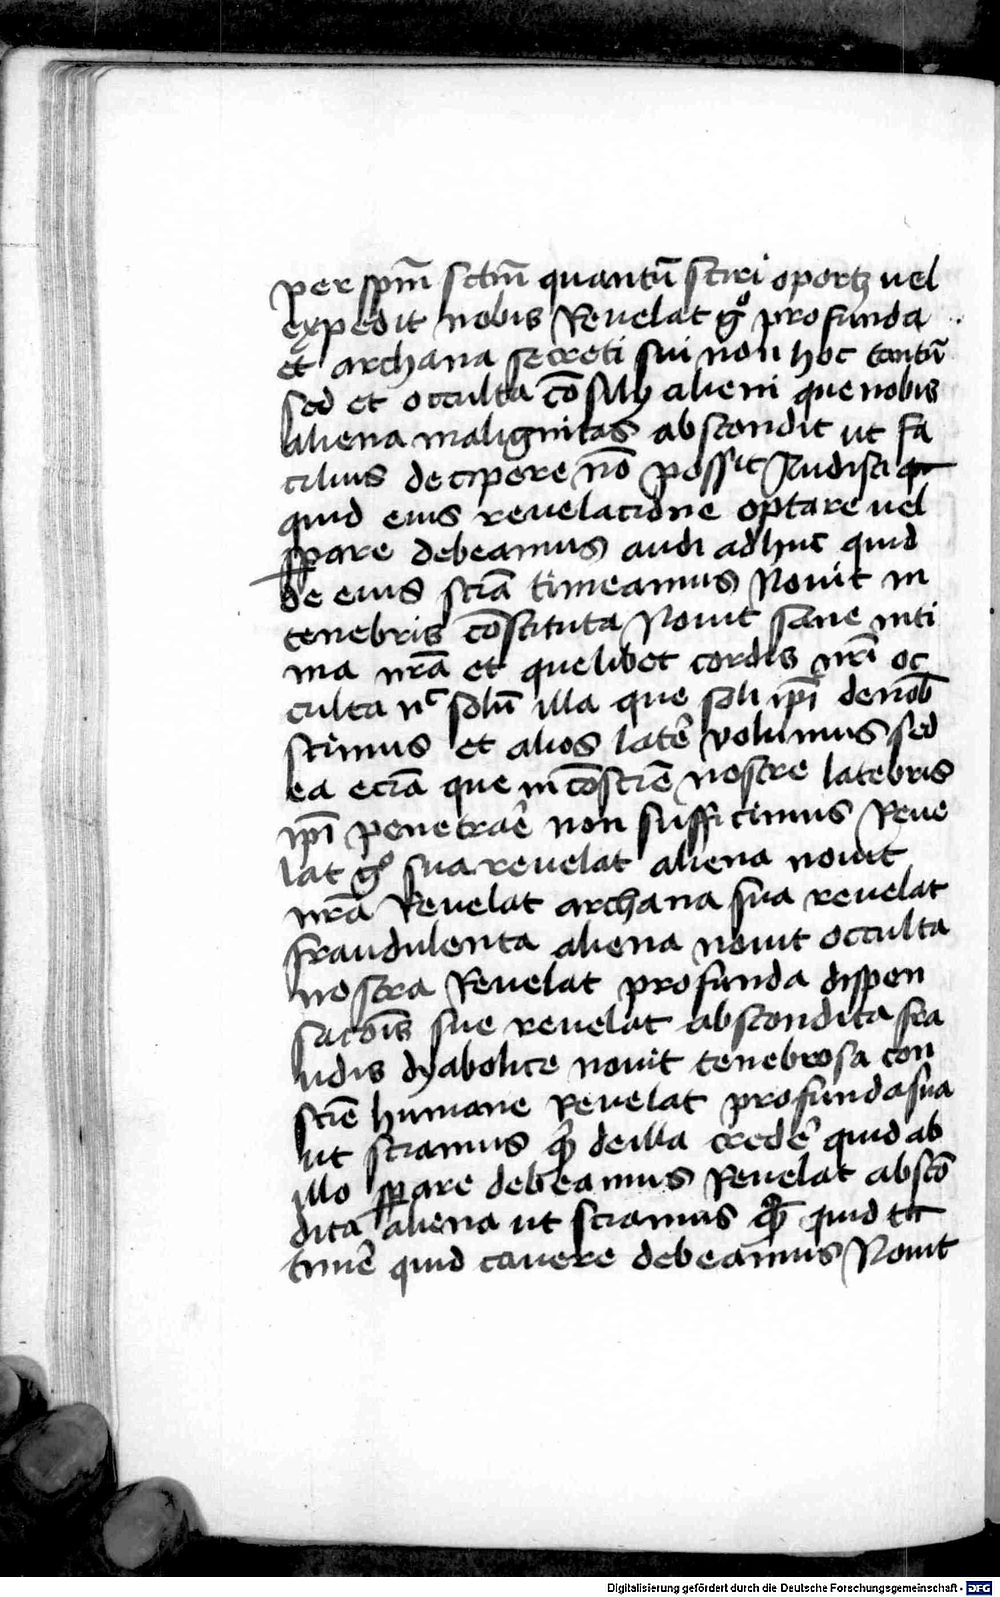 per sp̄m sctm̄ quantū sciri oportꝫ vel
expedit nobis Reuelat gͦ profunda
et archana secreti sui non hoc tantū
sed et occulta cōsilij alieni que nobis
aliena malignitas abscondit ut fa
cilius decipere nō possit Audisti
quid eius reuelacione optare uel
sꝑare debeamus audi adhuc quid
de eius sciā timeamus Nouit in
tenebris cōstituta Nouit sane inti
ma nrā et quelibet cordis nrī oc
culta nͨ solū illa que soli ip̄i de nob̄
scimus et alios latē volumus sed
ea eciā que in cōsciē nostre latebris
ip̄i penetraē non sufficimus Reue
lat gͦ sua reuelat aliena nouit
nrā Reuelat archana sua reuelat
fraudulenta aliena nouit occulta
nostra Reuelat profunda dispen
sacōis sue reuelat abscondita fra
udis dyabolice nouit tenebrosa con
sciē humane Reuelat profunda sua
ut sciamus qͥd de illa credē quid ab
illo sꝑare debeamus Reuelat abscō
dita aliena ut sciamus quid
timē quid cauere debeamus Nouit
Digitalisierung gefördert durch die Deutsche Forschungsgemeinschaft - DFG